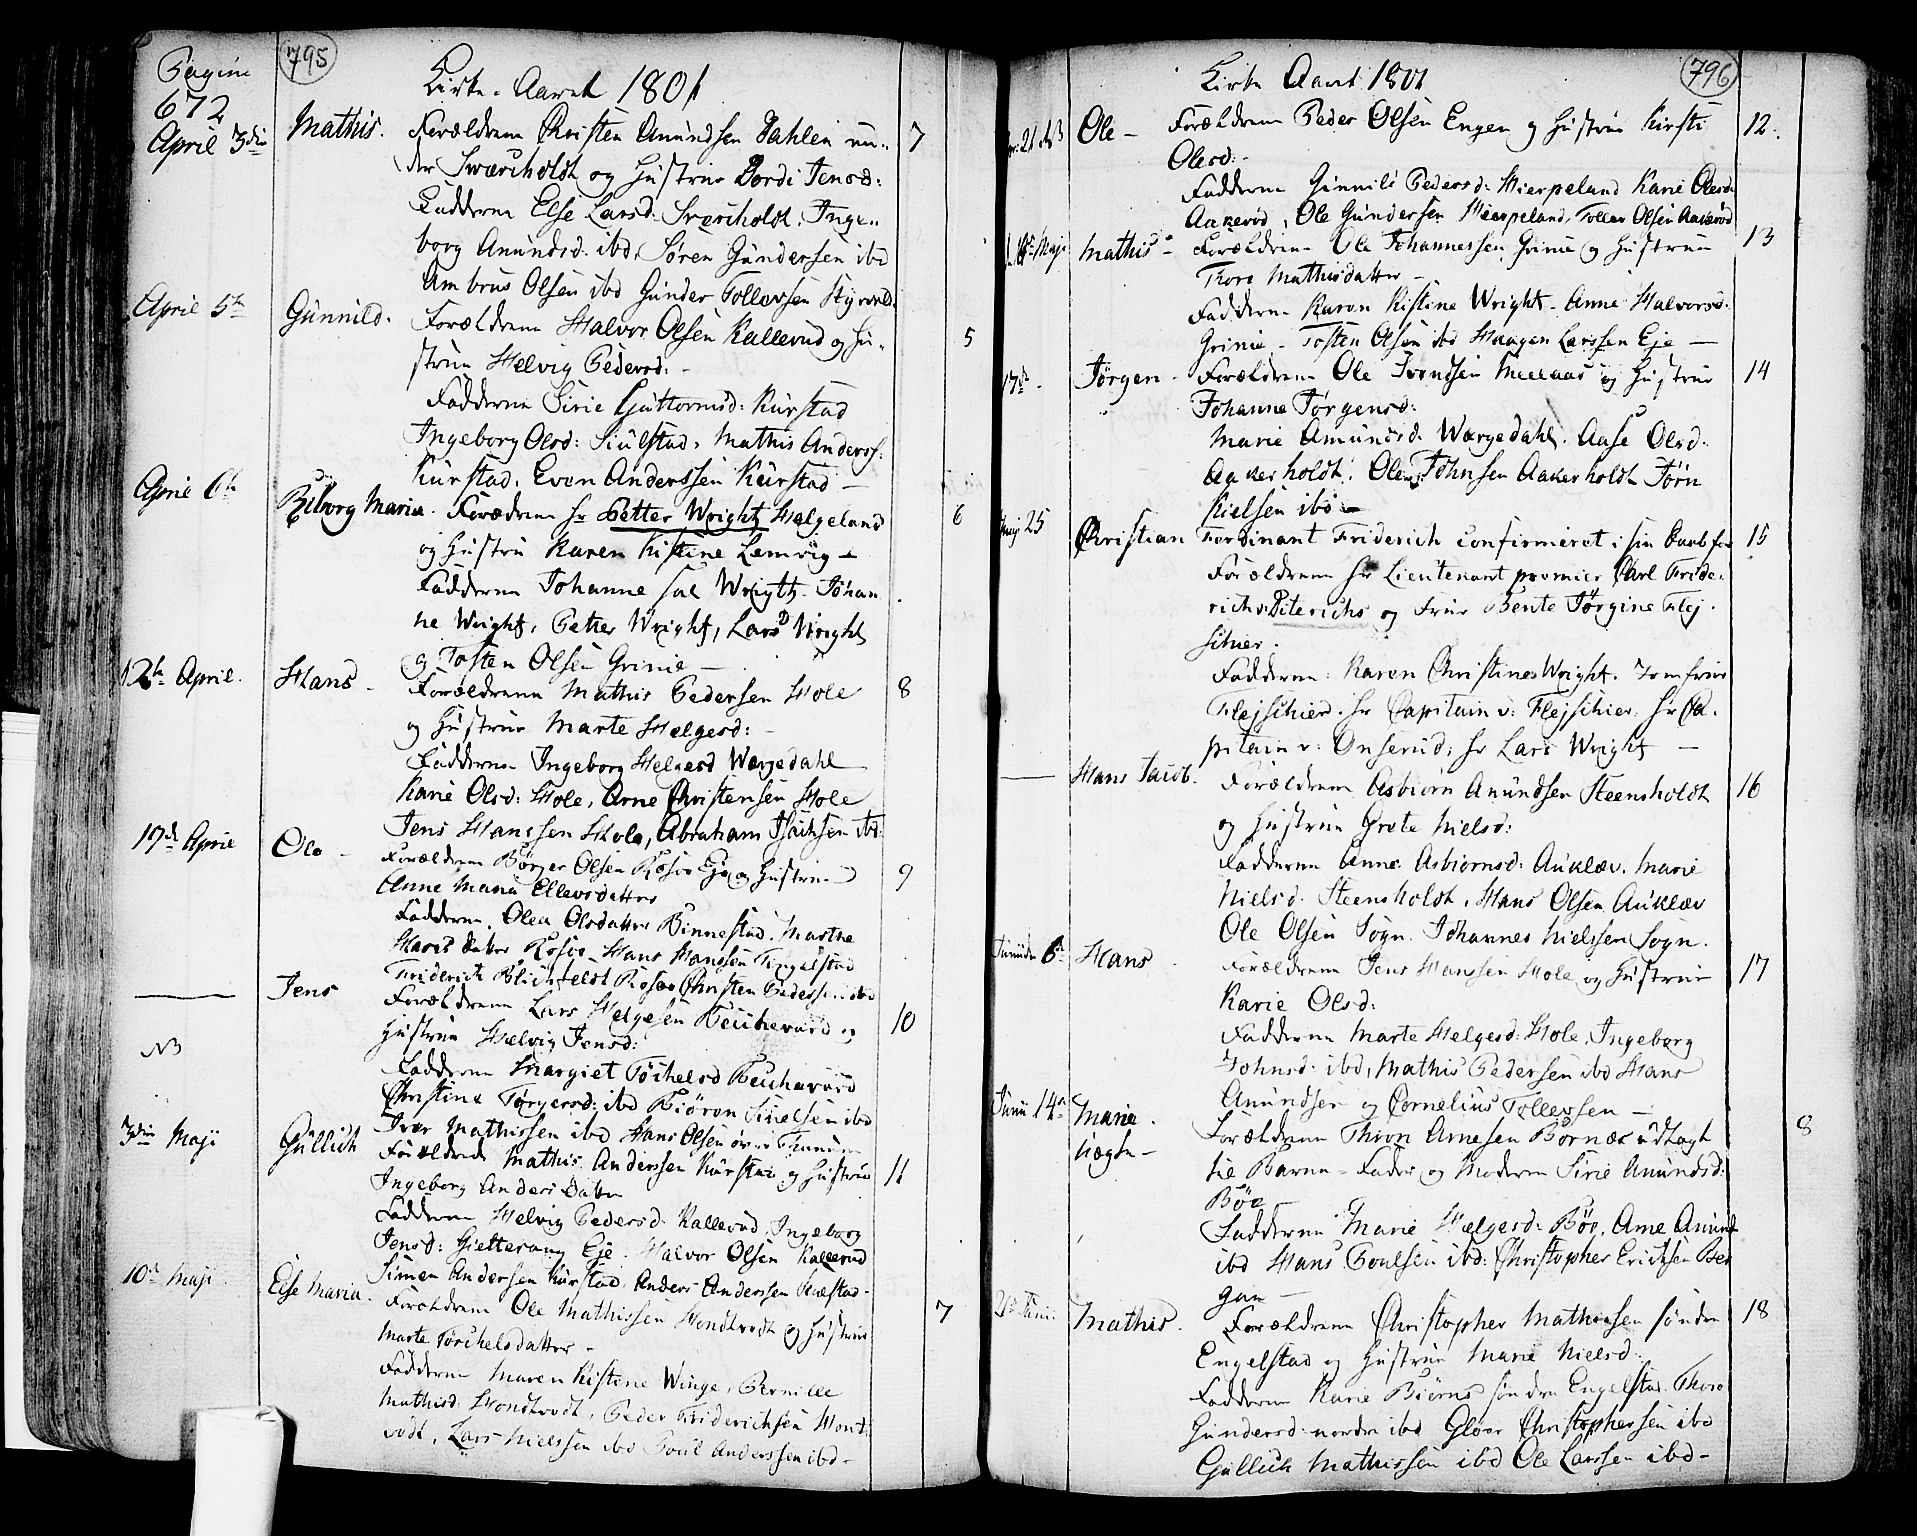 Pagine
672
795
Kirke-Aaret 1801
April 3die Mathis. Forældrene Christen Anundsen Dahlen un- 7
der Sværiholdt og Hustrue Dordi Jensd:
Fadderne Else Larsd: Sværiholdt, Inge-
borg Anundsd: ibd, Søren Gundersen ibd
Ambrus Olsen ibd Gunder Tollevsen
April 5te Gunnild. Forældrene Halvor Olsen Kallerud og Hu- 5
strue Helvig Pedersd: -
Fadderne Sirie Guttormsd: Kurstad
Ingeborg Olsd: Mathis Anderss:
Kurstad, Even Anderssen Kurstad -
April 6te Maria. Forædrene Hr Petter Wright Helgeland 6
og Hustru Karen Kistine Lemvig -
Fadderne Johanne sal Wrigth. Johan
ne Wright, Petter Wright, Lars Wright
og Tosten Olsen Grinie -
12te April. Hans - Forældrene Mathis Pedersen Hole 8
og Hustrue Marte Helgesd: -
Fadderne Ingeborg Helgesd Wærgedahl
Karie Olsd: Hole, Arne Christensen Hole
Jens Hanssen Hole, Abraham Isachsen ibd:
17de April Ole - Forældrene Børger Olsen Rosøe Eje og Hustrue 9
Anne Maria Ellevsdatter
Fadderne Olea Olsdatter Binnestad. Marthe
datter Rosøe, Hans Hanssen
Friderich Blichfeldt Rosøe Christen Pederssen ibd
Jens Forældrene Lars Helgesen og 10
Hustrue Helvig Jensd:
NB
Fadderne Margiet
Christine Torgersd: ibd Biørn ibd
Iver Mathissen ibd Hans Olsen
3die Maji Gullich Forældrene Mathis Anderssen Kurstad og Hustrue 11
Ingeborg Anders Datter
Fadderne Helvig Pedersd. Kallerud, Ingeborg
Jensd: Eje. Halvor Olsen Kallerud
Simen Andersen Kurstad Anders Anderssen
10de Maji Else Maria. Forældrene Ole Mathissen Hondtvedt og Hustrue 7
Marte Torchelsdatter -
Fadderne Maren Kistine Winge, Pernille
Mathisd: Hondtvedt, Peder Friderichsen Hondt
vedt, Lars Nielssen ibd Poul Anderssen ibd -
796
Kirke Aaret 1801
Ole - Forældrene Peder Olsen Engen og Hustrue Kirsti 12.
Olesd: -
Fadderne Gunnild Pedersd: Hierpeland Karie Olesd:
Aakerød, Ole Gundersen Hierpeland, Tollev Olsen Aakerød
Maji Mathis - Forældrene Ole Johannessen Grinie og Hustrue 13
Thore Mathisdatter -
Fadderne Karen Kistine Wright - Anne Halvorsd:
Grinie - Tosten Olsen ibd Haagen Larssen Eje -
17de - Jørgen - Forældrene Ole Svendsen og Hustrue 14
Johanne Jørgensd:
Marie Amundsd. Wærgedahl. Aase Olsd.
Aakerholdt. Ole Johnsen Aakerholdt Jørn
Nielsen ibd -
Maji 25 Christian Ferdinant Friderich confirmeret i sin Daab for 15
Forældrene Hr Lieutenant premier Carl Fride-
rich v: Diterichs og Frue Bente Jørgine Flej-
schier.
Fadderne: Karen Christine Wright. Jomfrue
Flejschier. Hr Capitain v: Flejschier. Hr Ca-
pitain v: Onserud, Hr Lars Wright -
Hans Jacob. Forældrene Asbiørn Anundsen Steensholdt 16
og Hustrue Grete Nielsd:
Fadderne Anne Asbiørnsd: Auklæv, Marie
Nielsd. Steensholdt, Hans Olsen Auklæv
Ole Olsen Sogn. Johannes Nielssen Sogn.
Hans Forældrene Jens Hanssen Hole og Hustrue 17
Karie Olsd:
Fadderne Marte Helgesd: Hole, Ingeborg
Johnsd: ibd, Mathis Pedersen ibd Hans
Anundsen og Cornelius Tollevsen -
Junii 14de Marie. Forældrene Thron Arnesen Bornæs udlagt 8
Uægte - til Barne-Fader og Moderen Sirie Anundsd:
Bøe -
Fadderne Marie Helgesd: Bøe. Arne Anund
ibd Hans Poulsen ibd: Christopher Erichsen Ber
gan -
21de Junii Mathis. Forældrene Christopher Mathissen søndre 18
Engelstad og Hustrue Marie Nielsd.
Fadderne Karie Biørns søndre Engelstad. Thore
Gundersd: nordre ibd Gloer Christophersen ibd
Gullich Mathissen ibd Ole Larssen ibd -